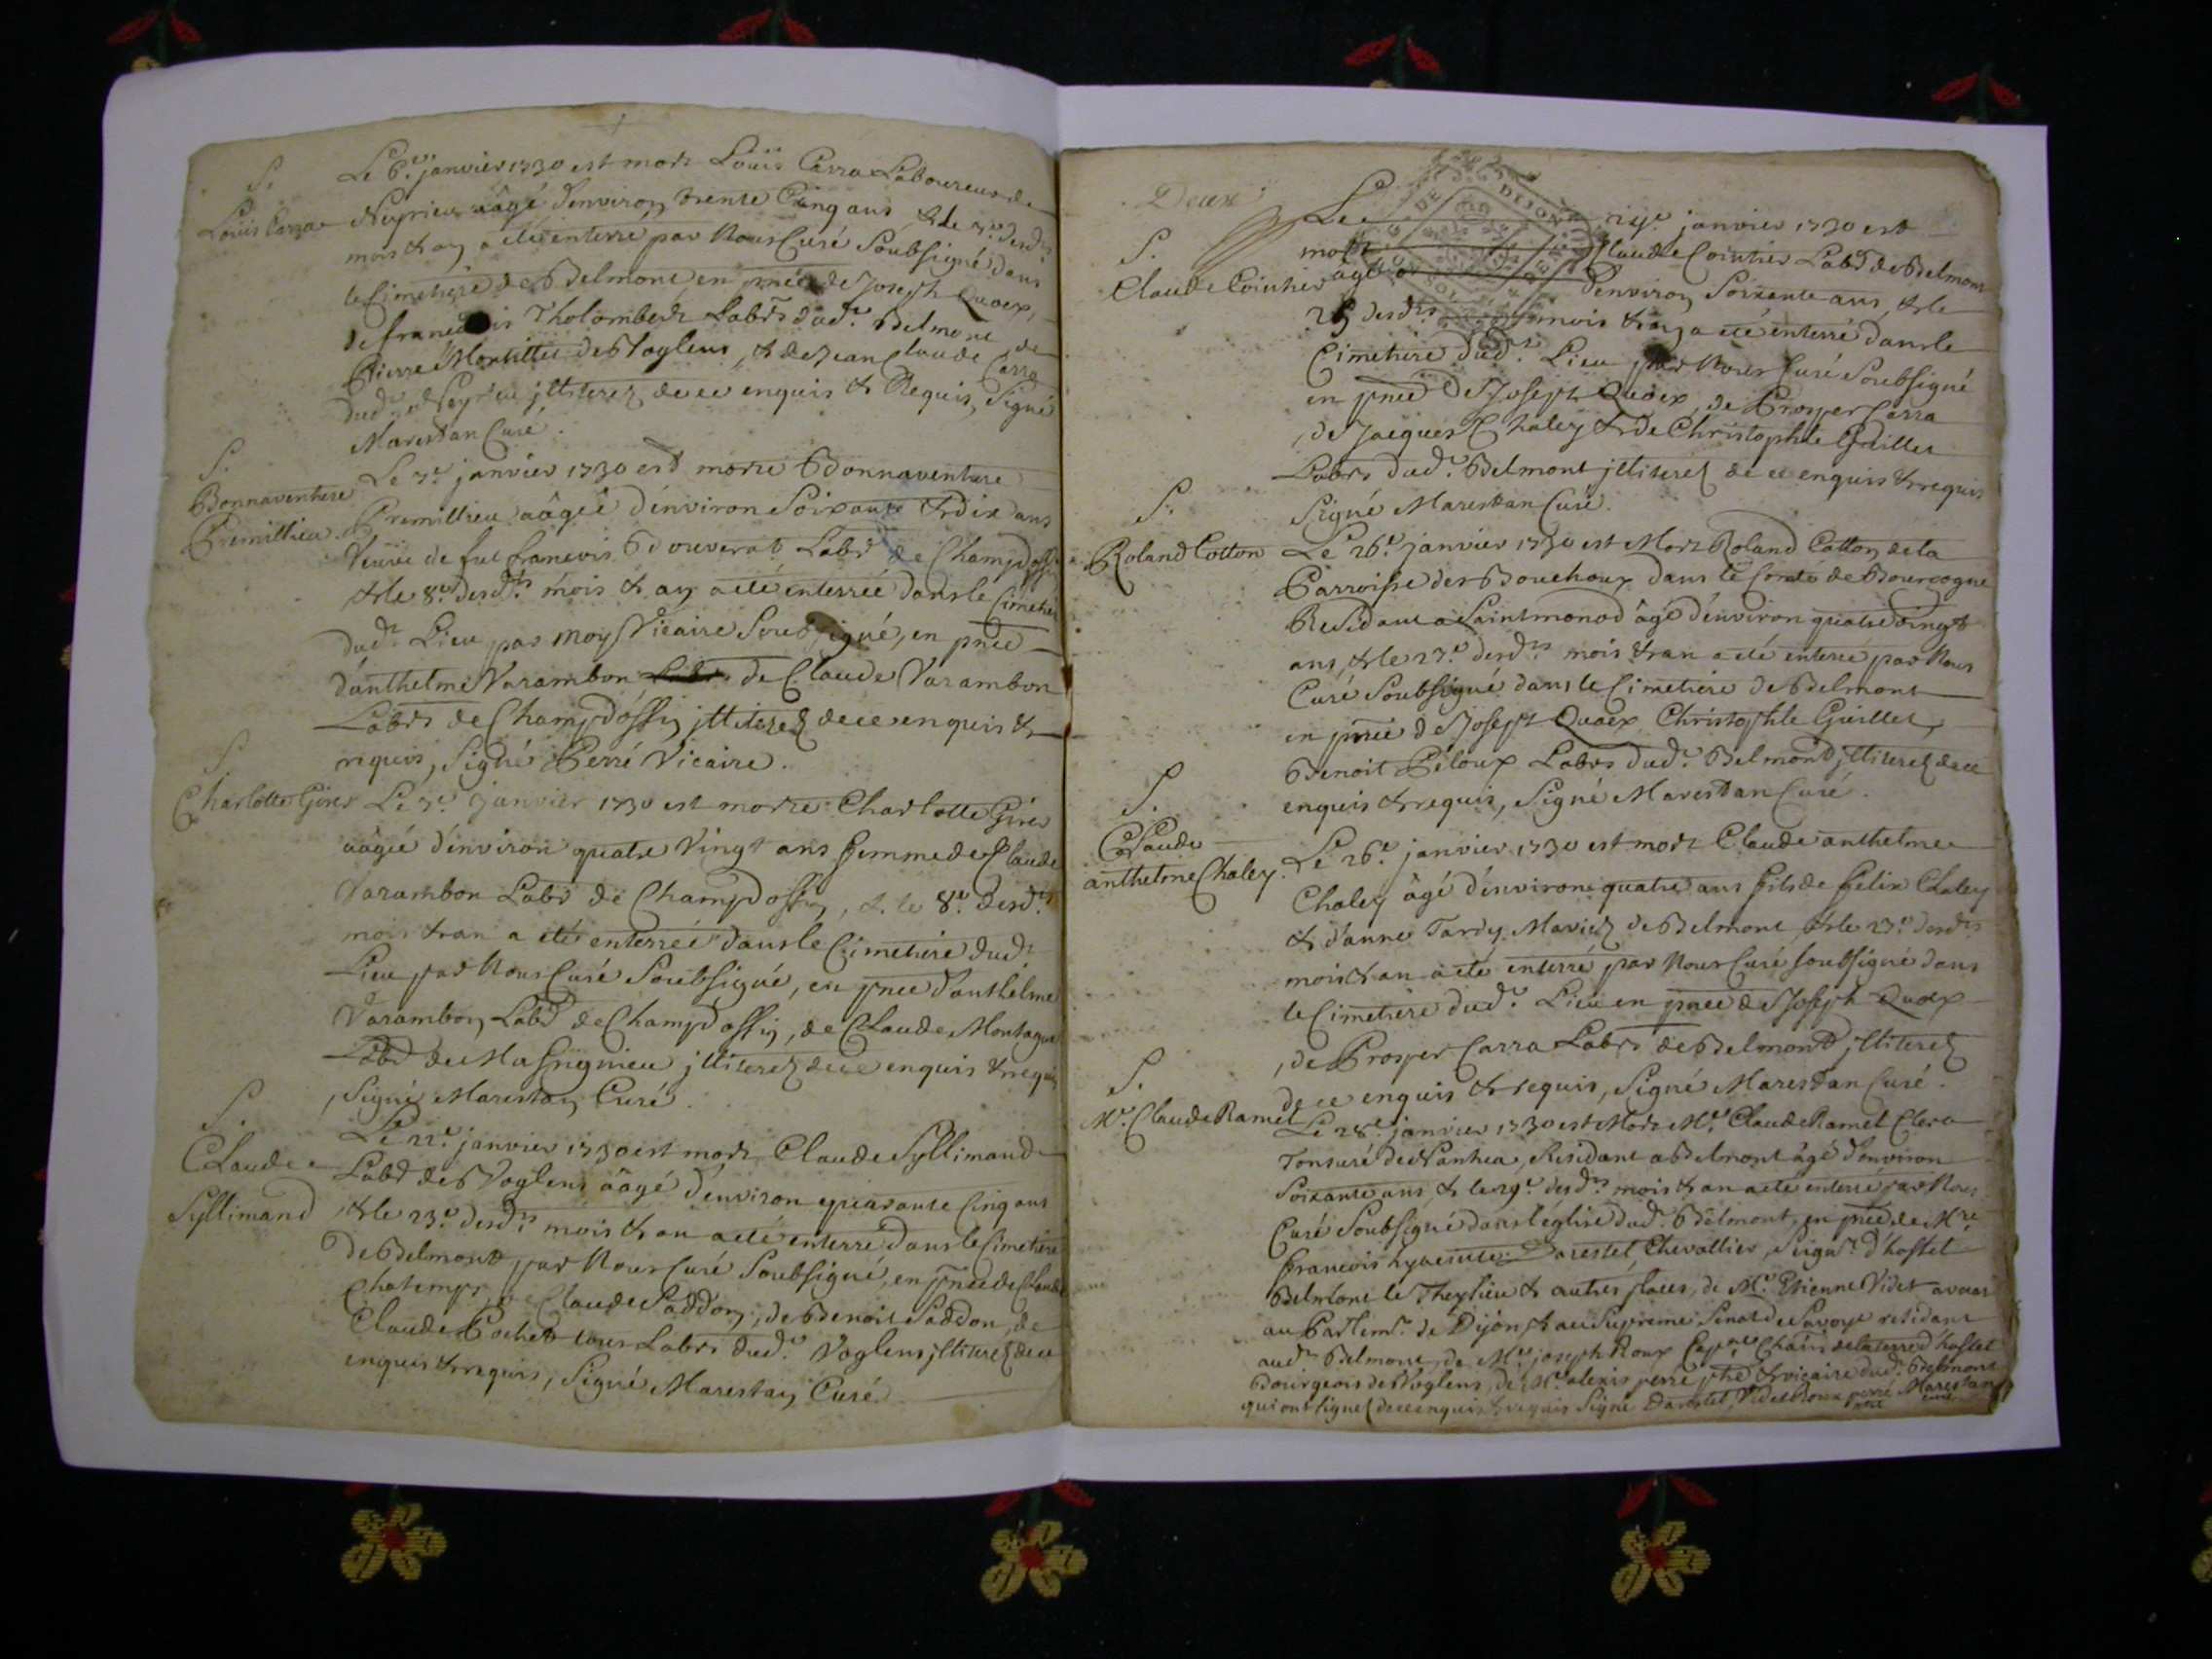 S.
Louis Carra
Le 6.e janvier 1730 est mort Louis Carra Laboureur de
Neyrieu aâgé d'environ trente Cinq ans, & le 7.e desdts
mois & an a été enterré par Nous Curé Soubsigné dans
le Cimetiere de Belmont en pnce de Joseph Quaex,
de francois Tholombert Labrs dudt Belmont, de
Pierre Montillet de Voglens, & de Jean Claude Carra
dudt Neyrieu jlliterez de ce enquis & Requis, Signé
Marestan Curé.
S.
Bonnaventure
Premillieu
Le 7.e janvier 1730 est morte Bonnaventure
Premillieu aâgée d'environ Soixante & dix ans
Veuve de feu francois Bouverat Labr de Champdossin
& le 8.e desdts mois & an a eté enterrée dans le Cimetiere
dudt Lieu par moy Vicaire Soubsigné, en pnce
d'anthelme Varambon de Claude Varambon
Labrs de Champdossin jlliterez de ce enquis &
requis, Signé Perré Vicaire.
S.
Charlotte Giros
Le 7.e janvier 1730 est morte Charlotte Giros
aâgée d'environ quatre Vingt ans femme de Claude
Varambon Labr de Champdossin, & le 8.e desdts
mois & an a eté enterrée dans le Cimetiere dudt
Lieu par Nous Curé Soubsigné, en pnce d'anthelme
Varambon Labr de Champdossin, de Claude Montagne
Labr de Massignieu jlliterez de ce enquis & requis
, Signé Marestan Curé.
S.
Claude
Syllimand
Le 22.e janvier 1730 est mort Claude Syllimand
Labr de Voglens aâgé d'environ quarante Cinq ans
& le 23.e desdts mois & an a eté enterré dans le Cimetiere
de Belmont par Nous Curé Soubsigné, en pnce de Claude
Chatemps, de Claude Saddon, de Benoit Saddon, de
Claude Pochet tous Labrs dudt Voglens jlliterez de ce
enquis & requis, Signé Marestan Curé.
Deux
S.
Claude Cointier
Le 24.e janvier 1730 est
mort Claude Cointier Labr de Belmont
âgé d'environ Soixante ans, & le
25 desdts mois & an a eté enterré dans le
Cimetiere dudt Lieu par Nous Curé Soubsigné
en pnce de Joseph Quaex, de Prosper Carra
, de Jacques Chaley & de Christophle Guillet
Labrs dudt Belmont jlliterez de ce enquis & requis
Signé Marestan Curé.
S.
Roland Cotton
Le 26.e janvier 1730 est Mort Roland Cotton de la
Parroisse des Bouchoux dans le Comté de Bourgogne
Residant a Saintmonod âgé d'environ quatre vingt
ans, & le 27.e desdts mois & an a eté enterré par Nous
Curé Soubsigné dans le Cimetiere de Belmont
en pnce de Joseph Quaex Christophle Guillet,
Benoit Peloux Labrs dudt Belmont jlliterez de ce
enquis & requis, Signé Marestan Curé.
S.
Claude
anthelme Chaley.
Le 26.e janvier 1730 est mort Claude anthelme
Chaley âgé d'environ quatre ans fils de felix Chaley
& d'anne Tardy Mariez de Belmont, & le 27.e desdts
mois & an a eté enterré par Nous Curé soubsigné dans
le Cimetiere dudt Lieu en pnce de Joseph Quaex
, de Prosper Carra Labrs de Belmont jlliterez
de ce enquis & requis, Signé Marestan Curé.
S.
Mr. Claude Ramel
Le 28.e janvier 1730 est Mort Mr. Claude Ramel Clerc
Tonsuré de Nantua, Residant a Belmont âgé d'environ
Soixante ans & le 29.e desdts mois & an a eté enterré par Nous
Curé Soubsigné dans l'église dudt Belmont, en pnce de Mre
francois hyacinte Darestel Chevallier, Seignr d'hostel
Belmont le Theylieu & autres places, de Mr. Etienne Videt avocat
au Parlemt de Dijon & au Supreme Senat de Savoye residant
audt Belmont, de Mr joseph Roux de la terre d'hostel
Bourgeois de Voglens, de Mr alexis perré ptre & vicaire dudt Belmont
qui ont signez de ce enquis & requis Signé Darestel, Videt Roux perré Marestan
curé